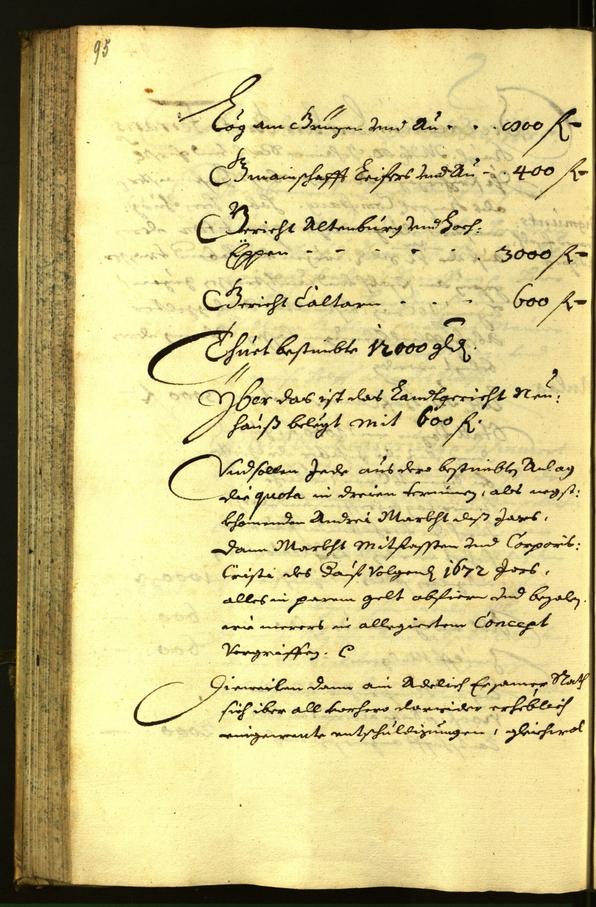 95
Eög am Griesen vnd Au . . . 800 fl
Gmainschafft Leifers vnd Au - . 400 fl
Gericht Altenburg vnd Hoch:
Eppen - - - - - . 3000 fl
Gericht Caltarn . . . 600 fl
Thuet bestimbte 12000 gld.
Yber das ist das Landtgericht Neu:
hauß belegt mit 600 fl.
Vnd sollen Jede aus dero bestimbten Anlag
die quota in dreien terminen, als negst:
khomenden Andreä Markht diß Jars,
dann Markht Mitfassten vnd Corporis:
Cristi des daruf volgend 1672 Jars,
alles in parem gelt abfiern vnd bezalen,
wie merers in allegiertem Concept
vergriffen. C
Dieweilen dann ain Adelich Ersamer Rath
sich iber all vorhero darwider erheblich
eingewente entschuldigungen, gleichwol